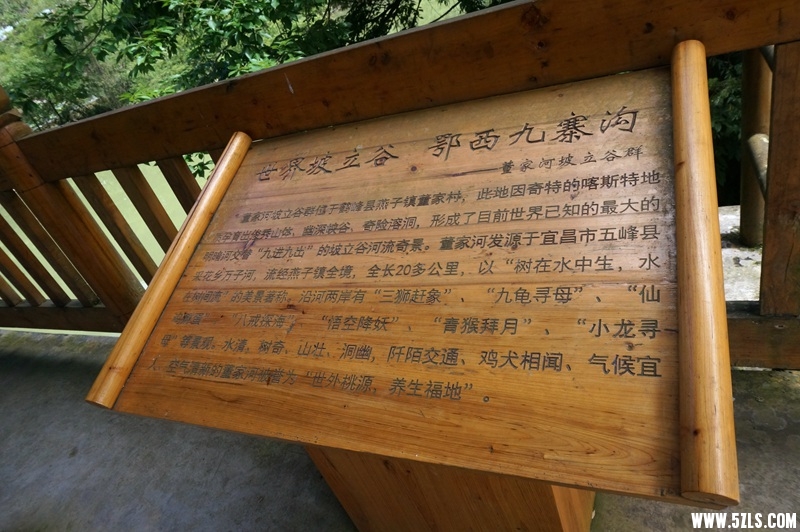 世界坡立谷 鄂西九寨沟
——董家河坡立谷群
董家河坡立谷群位于鹤峰县燕子镇董家村，此地因奇特的喀斯特地
孕育出秀山峦、幽深峡谷、奇险溶洞，形成了目前世界已知的最大的
明暗河交替“九进九出”的坡立谷河流奇景。董家河发源于宜昌市五峰县
采花乡万子河，流经燕子镇全境，全长20多公里，以“树在水中生，水
在树间流”的美景著称，沿河两岸有“三狮赶象”、“九龟寻母”、“仙
“八戒探海”、“悟空降妖”、“青猴拜月”、“小龙寻
母”等景观，水清、树奇、山壮、洞幽，阡陌交通、鸡犬相闻、气候宜
人、空气清新的董家河被誉为“世外桃源，养生福地”。
WWW.5ZLS.COM